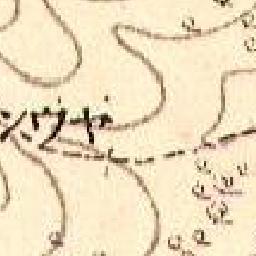 ンウヤ